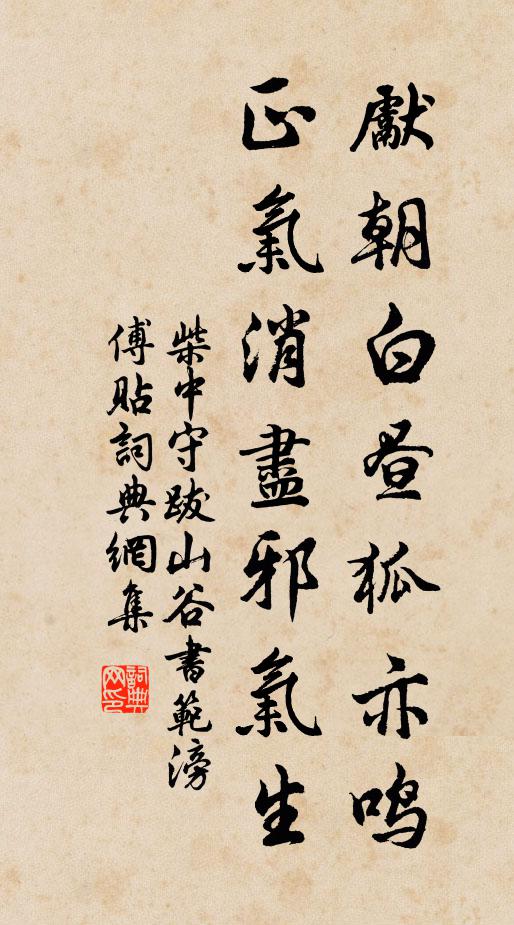 獻朝白昼狐亦鸣
正氣消盡邪氣生
柴中守跋山谷書範滂
傅貼詞典網集
詞典
网印